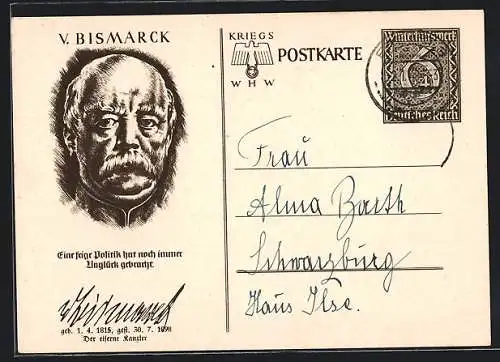 V. BISMARCK
Eine feige Politik hat noch immer
Unglück gebracht.
v Bismarck
geb. 1. 4. 1815, gest. 30. 7. 1898
Der eiserne Kanzler
KRIEGS
WHW
POSTKARTE
Winterhilfswerk
6
Deutsches Reich
Frau
Alma Barth
Schwarzburg
Haus Ilse.